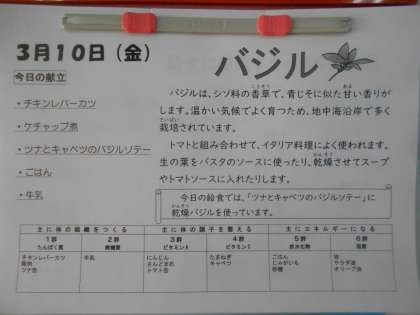 3月10日（金）
今日の献立
・チキンレバーカツ
・ケチャップ煮
・ツナとキャベツのバジルソテー
・ごはん
・牛乳
バジル
バジルは、シソ科の香草で、青じそに似た甘い香りが
します。温かい気候でよく育つため、地中海沿岸で多く
栽培されています。
トマトと組み合わせて、イタリア料理によく使われます。
生の葉をパスタのソースに使ったり、乾燥させてスープ
やトマトソースに入れたりします。
今日の給食では、「ツナとキャベツのバジルソテー」に
乾燥バジルを使っています。
主に体の組織をつくる 主に体の調子を整える 主にエネルギーになる
1群 2群 3群 4群 5群 6群
たんぱく質 無機質 ビタミンA ビタミンC 炭水化物 脂質
チキンレバーカツ 牛乳 にんじん たまねぎ ごはん 油
豚肉 さんどまめ キャベツ じゃがいも サラダ油
ツナ缶 トマト缶 砂糖 オリーブ油